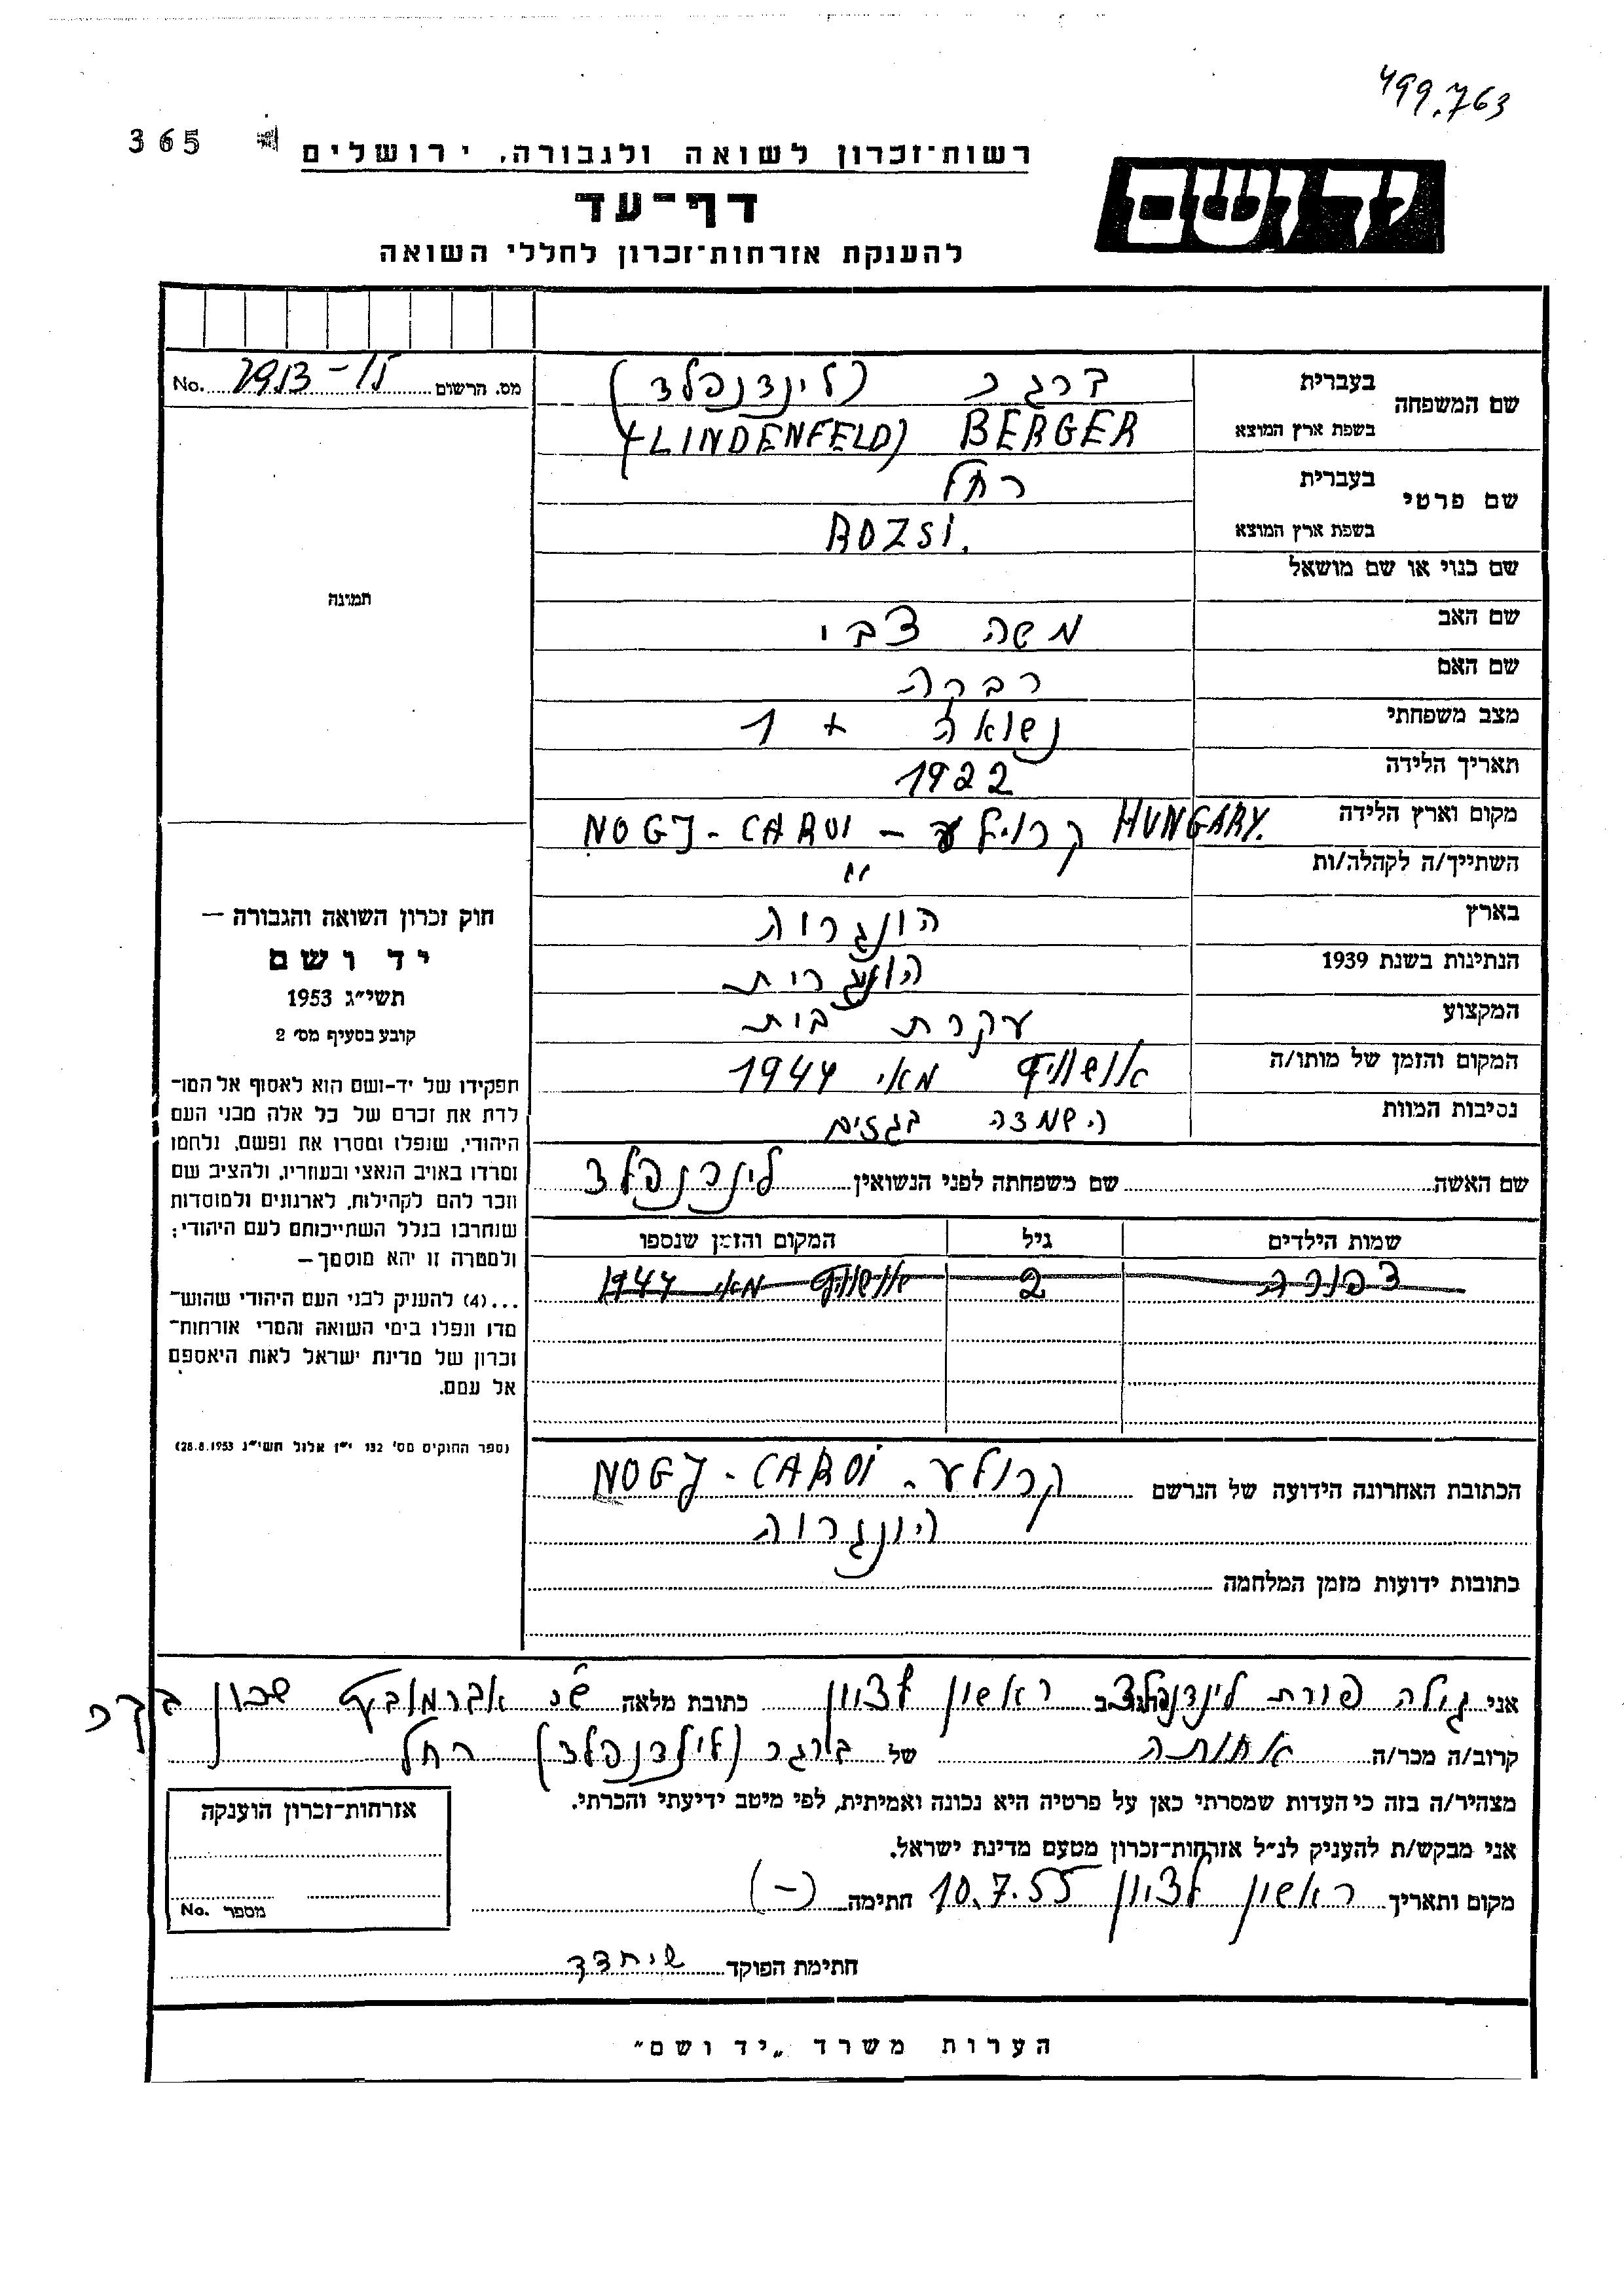 499.763
365
רשות־זכרון לשואה ולגבורה, ירושלים
יד ושם
דף־עד
להענקת אזרחות־זכרון לחללי השואה
מס. הרשום No.
שם המשפחה
בעברית ברגר (לינדנפלד)
בשפת ארץ המוצא BERGER (LINDENFELD)
שם פרטי
בעברית רחל
בשפת ארץ המוצא ROZSI.
שם כנוי או שם מושאל
שם האב משה צבי
שם האם רבקה
מצב משפחתי נשואה + 1
תאריך הלידה 1922
מקום וארץ הלידה HUNGARY. NOGJ-CAROI -
השתייך/ה לקהלה/ות "
בארץ הונגריה
הנתינות בשנת 1939 הונגרית
המקצוע עקרת בית
המקום והזמן של מותו/ה אושוויץ מאי 1944
נסיבות המוות השמדה בגזים
שם האשה שם משפחתה לפני הנשואין לינדנפלד
שמות הילדים גיל המקום והזמן שנספו
צפורה 2 אושוויץ מאי 1944
תמונה
חוק זכרון השואה והגבורה —
יד ושם
תשי"ג 1953
קובע בסעיף מס' 2
תפקידו של יד-ושם הוא לאסוף אל המו־
לדת את זכרם של כל אלה מבני העם
היהודי, שנפלו ומסרו את נפשם, נלחמו
ומרדו באויב הנאצי ובעוזריו, ולהציב שם
וזכר להם לקהילות, לארגונים ולמוסדות
שנחרבו בגלל השתייכותם לעם היהודי;
ולמטרה זו יהא מוסמך—
...(4) להעניק לבני העם היהודי שהוש־
מדו ונפלו בימי השואה והמרי אזרחות־
זכרון של מדינת ישראל לאות היאספם
אל עמם.
(ספר החוקים מס' 132 י"ז אלול תשי"ג 28.8.1953)
הכתובת האחרונה הידועה של הנרשם NOGJ-CAROI
הונגריה
כתובות ידועות מזמן המלחמה
אני גילה פורת לינדנפלד ראשון לציון כתובת מלאה
קרוב/ה מכר/ה אחותה של ברגר (לינדנפלד) רחל
מצהיר/ה בזה כי העדות שמסרתי כאן על פרטיה היא נכונה ואמיתית, לפי מיטב ידיעתי והכרתי.
אני מבקש/ת להעניק לנ"ל אזרחות־זכרון מטעם מדינת ישראל.
מקום ותאריך ראשון לציון 10.7.55 חתימה (-)
אזרחות־זכרון הוענקה
מספר No.
חתימת הפוקד
הערות משרד „יד ושם"